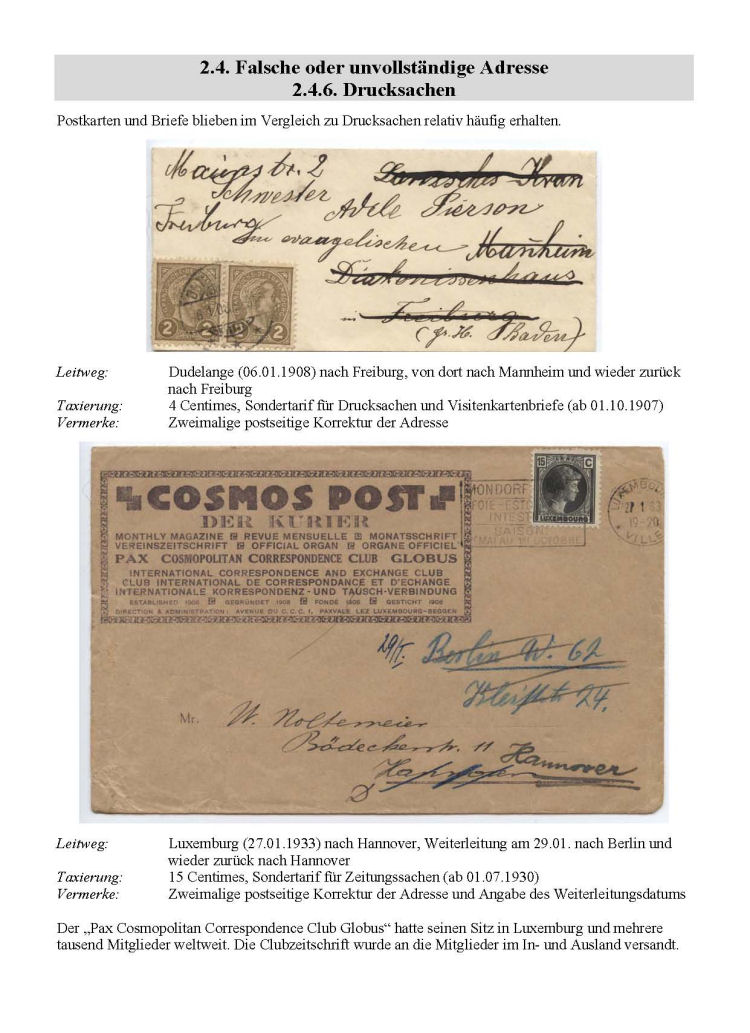 2.4. Falsche oder unvollständige Adresse
2.4.6. Drucksachen
Postkarten und Briefe blieben im Vergleich zu Drucksachen relativ häufig erhalten.
str. 2
Schwester
Adele Pierson
Freiburg
Im evangelischen Manheim
Diakonissenhaus
in Freiburg
(gr. H. Baden)
2 2
Leitweg: Dudelange (06.01.1908) nach Freiburg, von dort nach Mannheim und wieder zurück
nach Freiburg
Taxierung: 4 Centimes, Sondertarif für Drucksachen und Visitenkartenbriefe (ab 01.10.1907)
Vermerke: Zweimalige postseitige Korrektur der Adresse
COSMOS POST
DER KURIER
MONTHLY MAGAZINE REVUE MENSUELLE MONATSSCHRIFT
VEREINSZEITSCHRIFT OFFICIAL ORGAN ORGANE OFFICIEL
PAX COSMOPOLITAN CORRESPONDENCE CLUB GLOBUS
INTERNATIONAL CORRESPONDENCE AND EXCHANGE CLUB
CLUB INTERNATIONAL DE CORRESPONDANCE ET D'ECHANGE
INTERNATIONALE KORRESPONDENZ - UND TAUSCH-VERBINDUNG
ESTABLISHED 1908 GEGRÜNDET 1908 FONDÉ 1908 GESTICHT 1908
DIRECTION & ADMINISTRATION: AVENUE DU C.C.C.I., PAXVALE LEZ LUXEMBOURG-BEGGEN
MONDORF
FOIE-ESTO
INTEST
SAISON
MAI AU OCTOBRE
15 C
LUXEMBOURG
LUXEMBOU
27 1 33
19-20
VILLE
29/I. Berlin W. 62
Kleiststr 24.
Mr. W. Noltemeier
Bödeckerstr. 11 Hannover
D
Leitweg: Luxemburg (27.01.1933) nach Hannover, Weiterleitung am 29.01. nach Berlin und
wieder zurück nach Hannover
Taxierung: 15 Centimes, Sondertarif für Zeitungssachen (ab 01.07.1930)
Vermerke: Zweimalige postseitige Korrektur der Adresse und Angabe des Weiterleitungsdatums
Der „Pax Cosmopolitan Correspondence Club Globus“ hatte seinen Sitz in Luxemburg und mehrere
tausend Mitglieder weltweit. Die Clubzeitschrift wurde an die Mitglieder im In- und Ausland versandt.